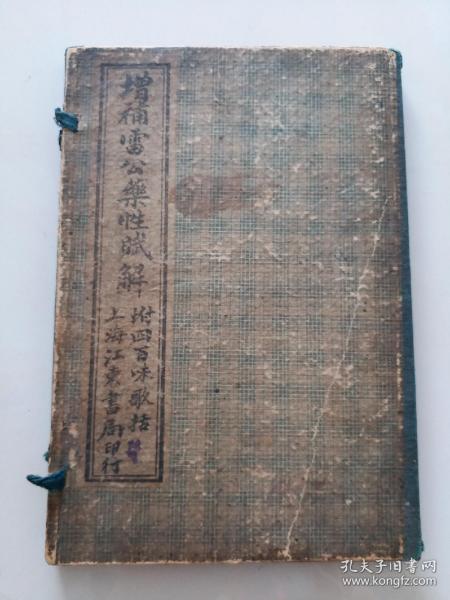 增補雷公藥性賦解
附四百味歌括
上海江東書局印行
孔夫子旧书网
www.kongfz.com